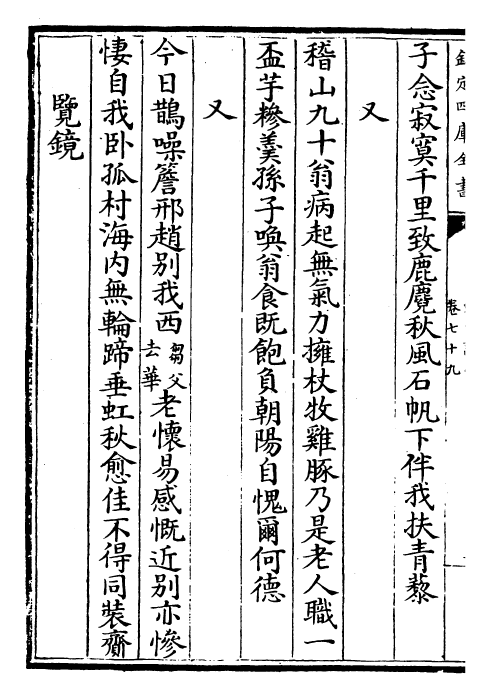 欽定四庫全書
卷七十九
子念寂寞千里致鹿麑秋風石帆下伴我扶青藜
又
稽山九十翁病起無氣力擁杖牧雞豚乃是老人職一
盃芋糝羹孫子喚翁食既飽負朝陽自愧爾何德
又
今日鵲噪簷邢趙别我西芻父去華老懷易感慨近别亦慘
悽自我卧孤村海内無輪蹄垂虹秋愈佳不得同裝齎
覽鏡